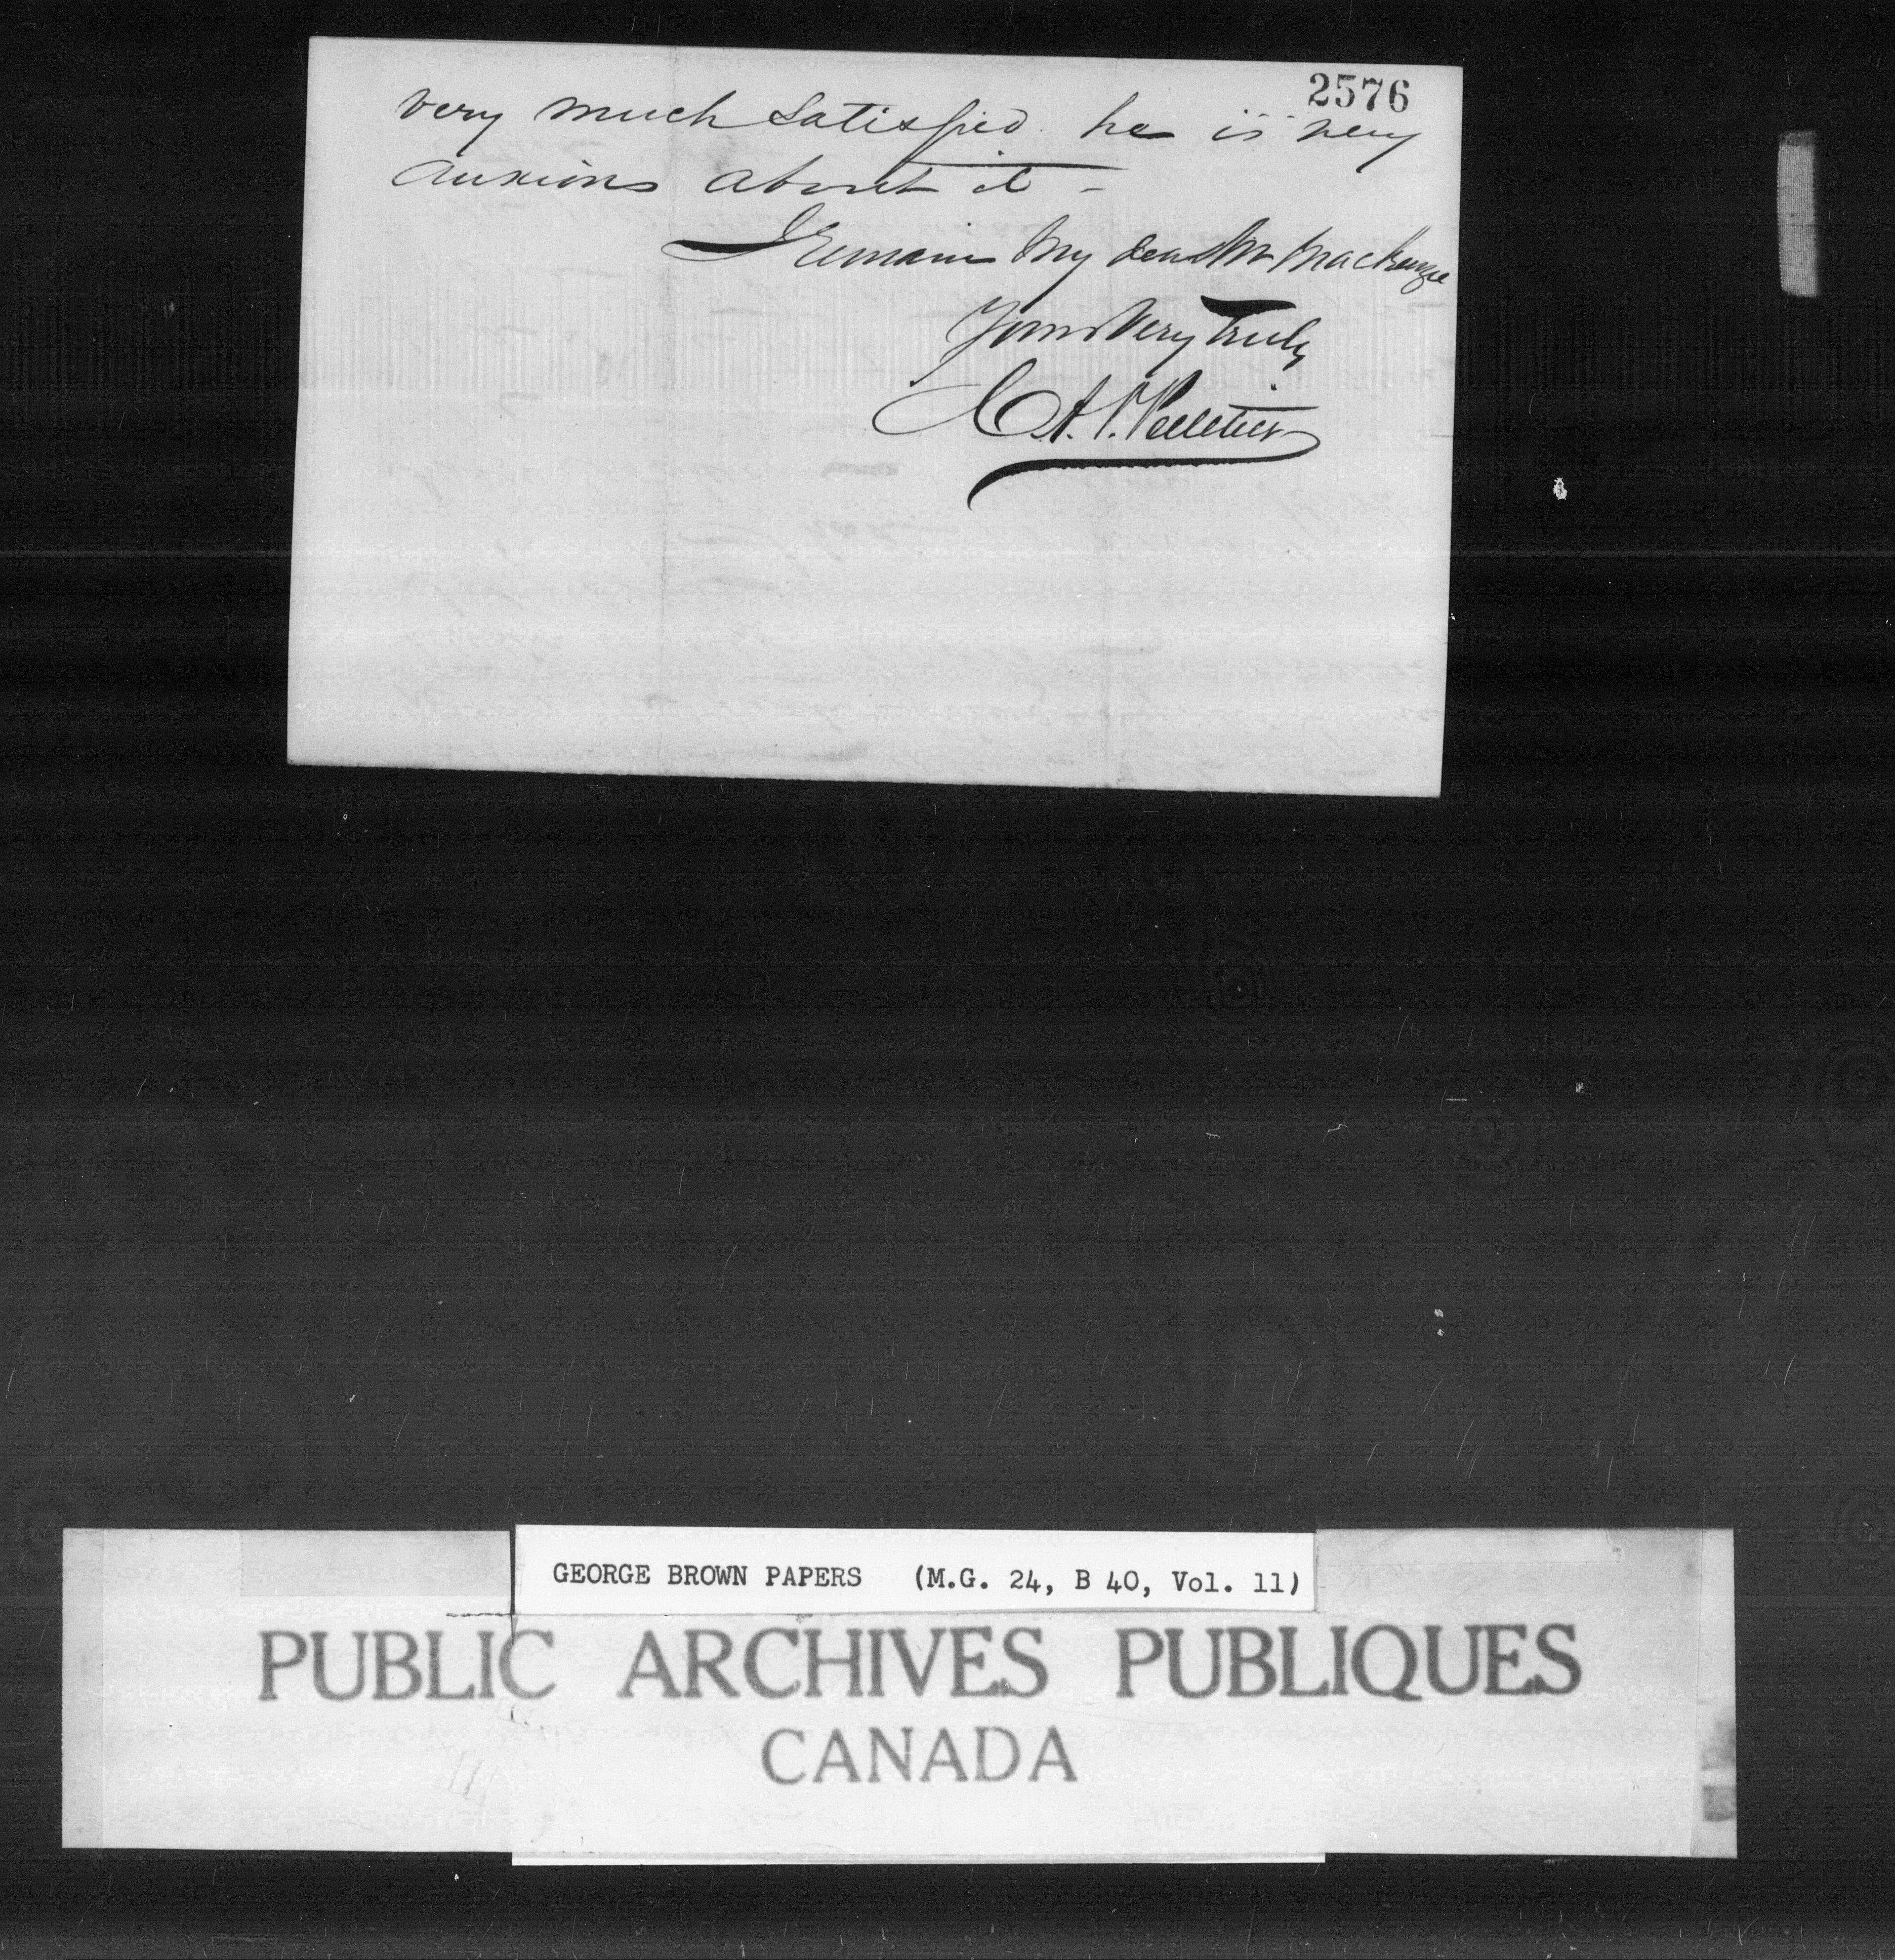 2576
very much satisfied. he is very
anxious about it -
I remain My dear Mr Mackenzie
Yours Very Truly
C. A. P. Pelletier
GEORGE BROWN PAPERS (M.G. 24, B 40, Vol. 11)
PUBLIC ARCHIVES PUBLIQUES
CANADA